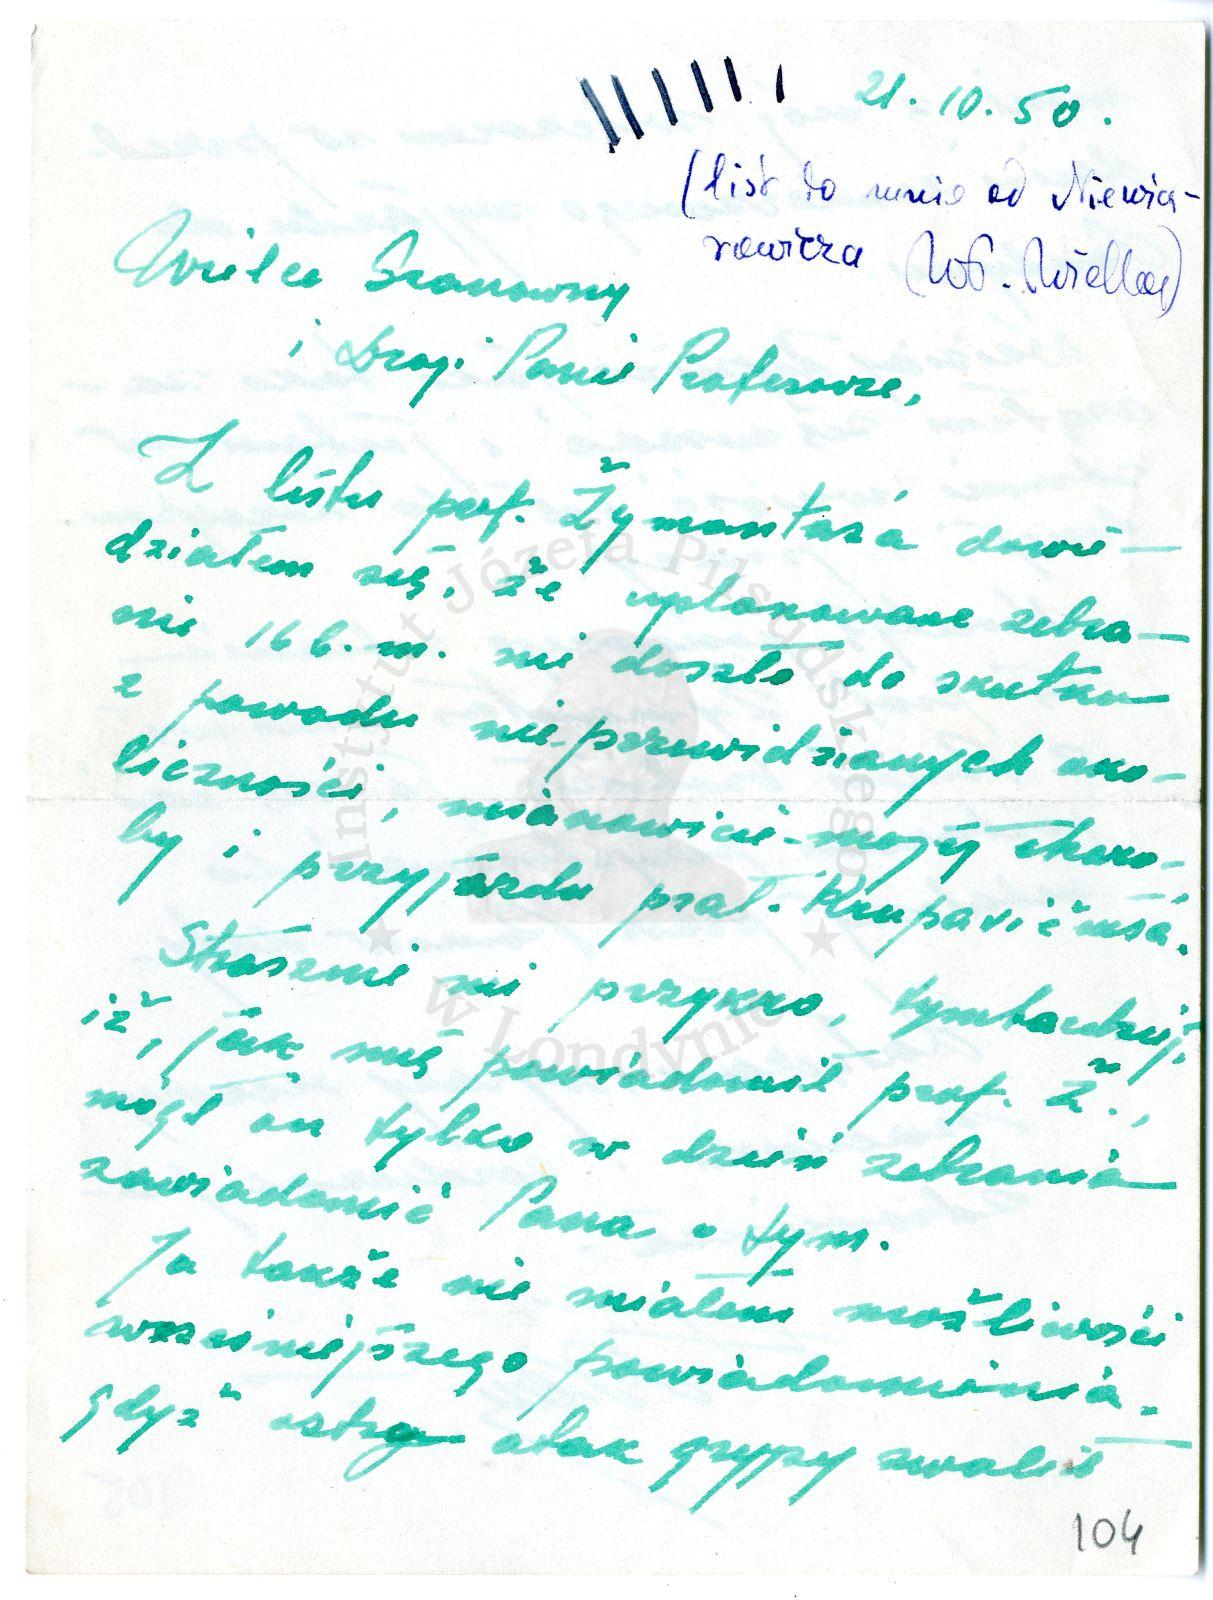 21.10.50.
(list do mnie od Niewia-
rowicza (Wł. Wielhor)
Wielce Szanowny
i Drogi Panie Profesorze,
Z listu prof. Žymantas'a dowie-
działem się, że uplanowane zebra-
nie 16 b.m. nie doszło do skutku
z powodu nieprzewidzianych oko-
liczności, mianowicie - mojej choro-
by i przyjazdu prał. Krupavičius'a.
Strasznie mi przykro, tymbardziej,
iż, jak mię powiadomił prof. Ž.,
mógł on tylko w dzień zebrania
zawiadomić Pana o tym.
Ja także nie miałem możliwości
wcześniejszego powiadomienia -
gdyż ostry atak grypy zwalił
104
Instytut Józefa Piłsudskiego
w Londynie